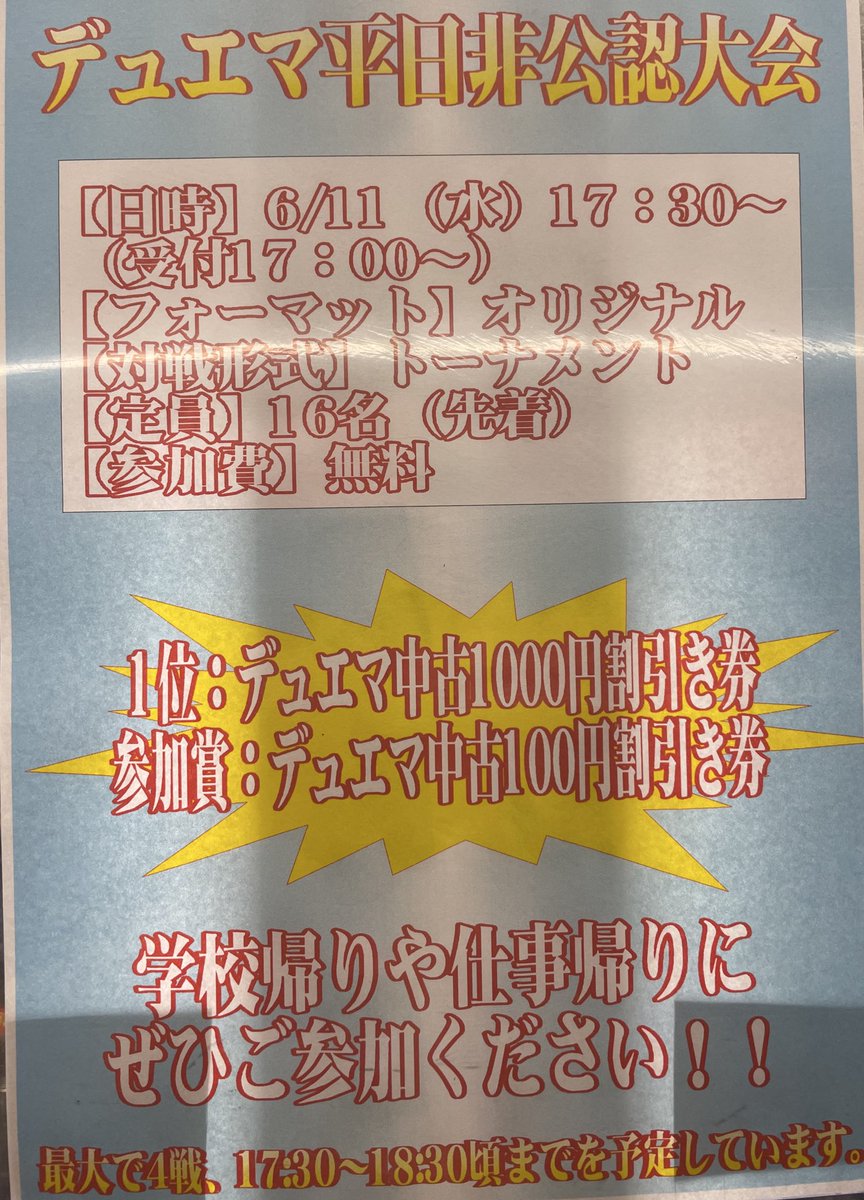 デュエマ平日非公認大会
【日時】6/11（水）17：30～
（受付17：00～）
【フォーマット】オリジナル
【対戦形式】トーナメント
【定員】16名（先着）
【参加費】無料
1位：デュエマ中古1000円割引き券
参加賞：デュエマ中古100円割引き券
学校帰りや仕事帰りに
ぜひご参加ください！！
最大で4戦、17:30～18:30頃までを予定しています。